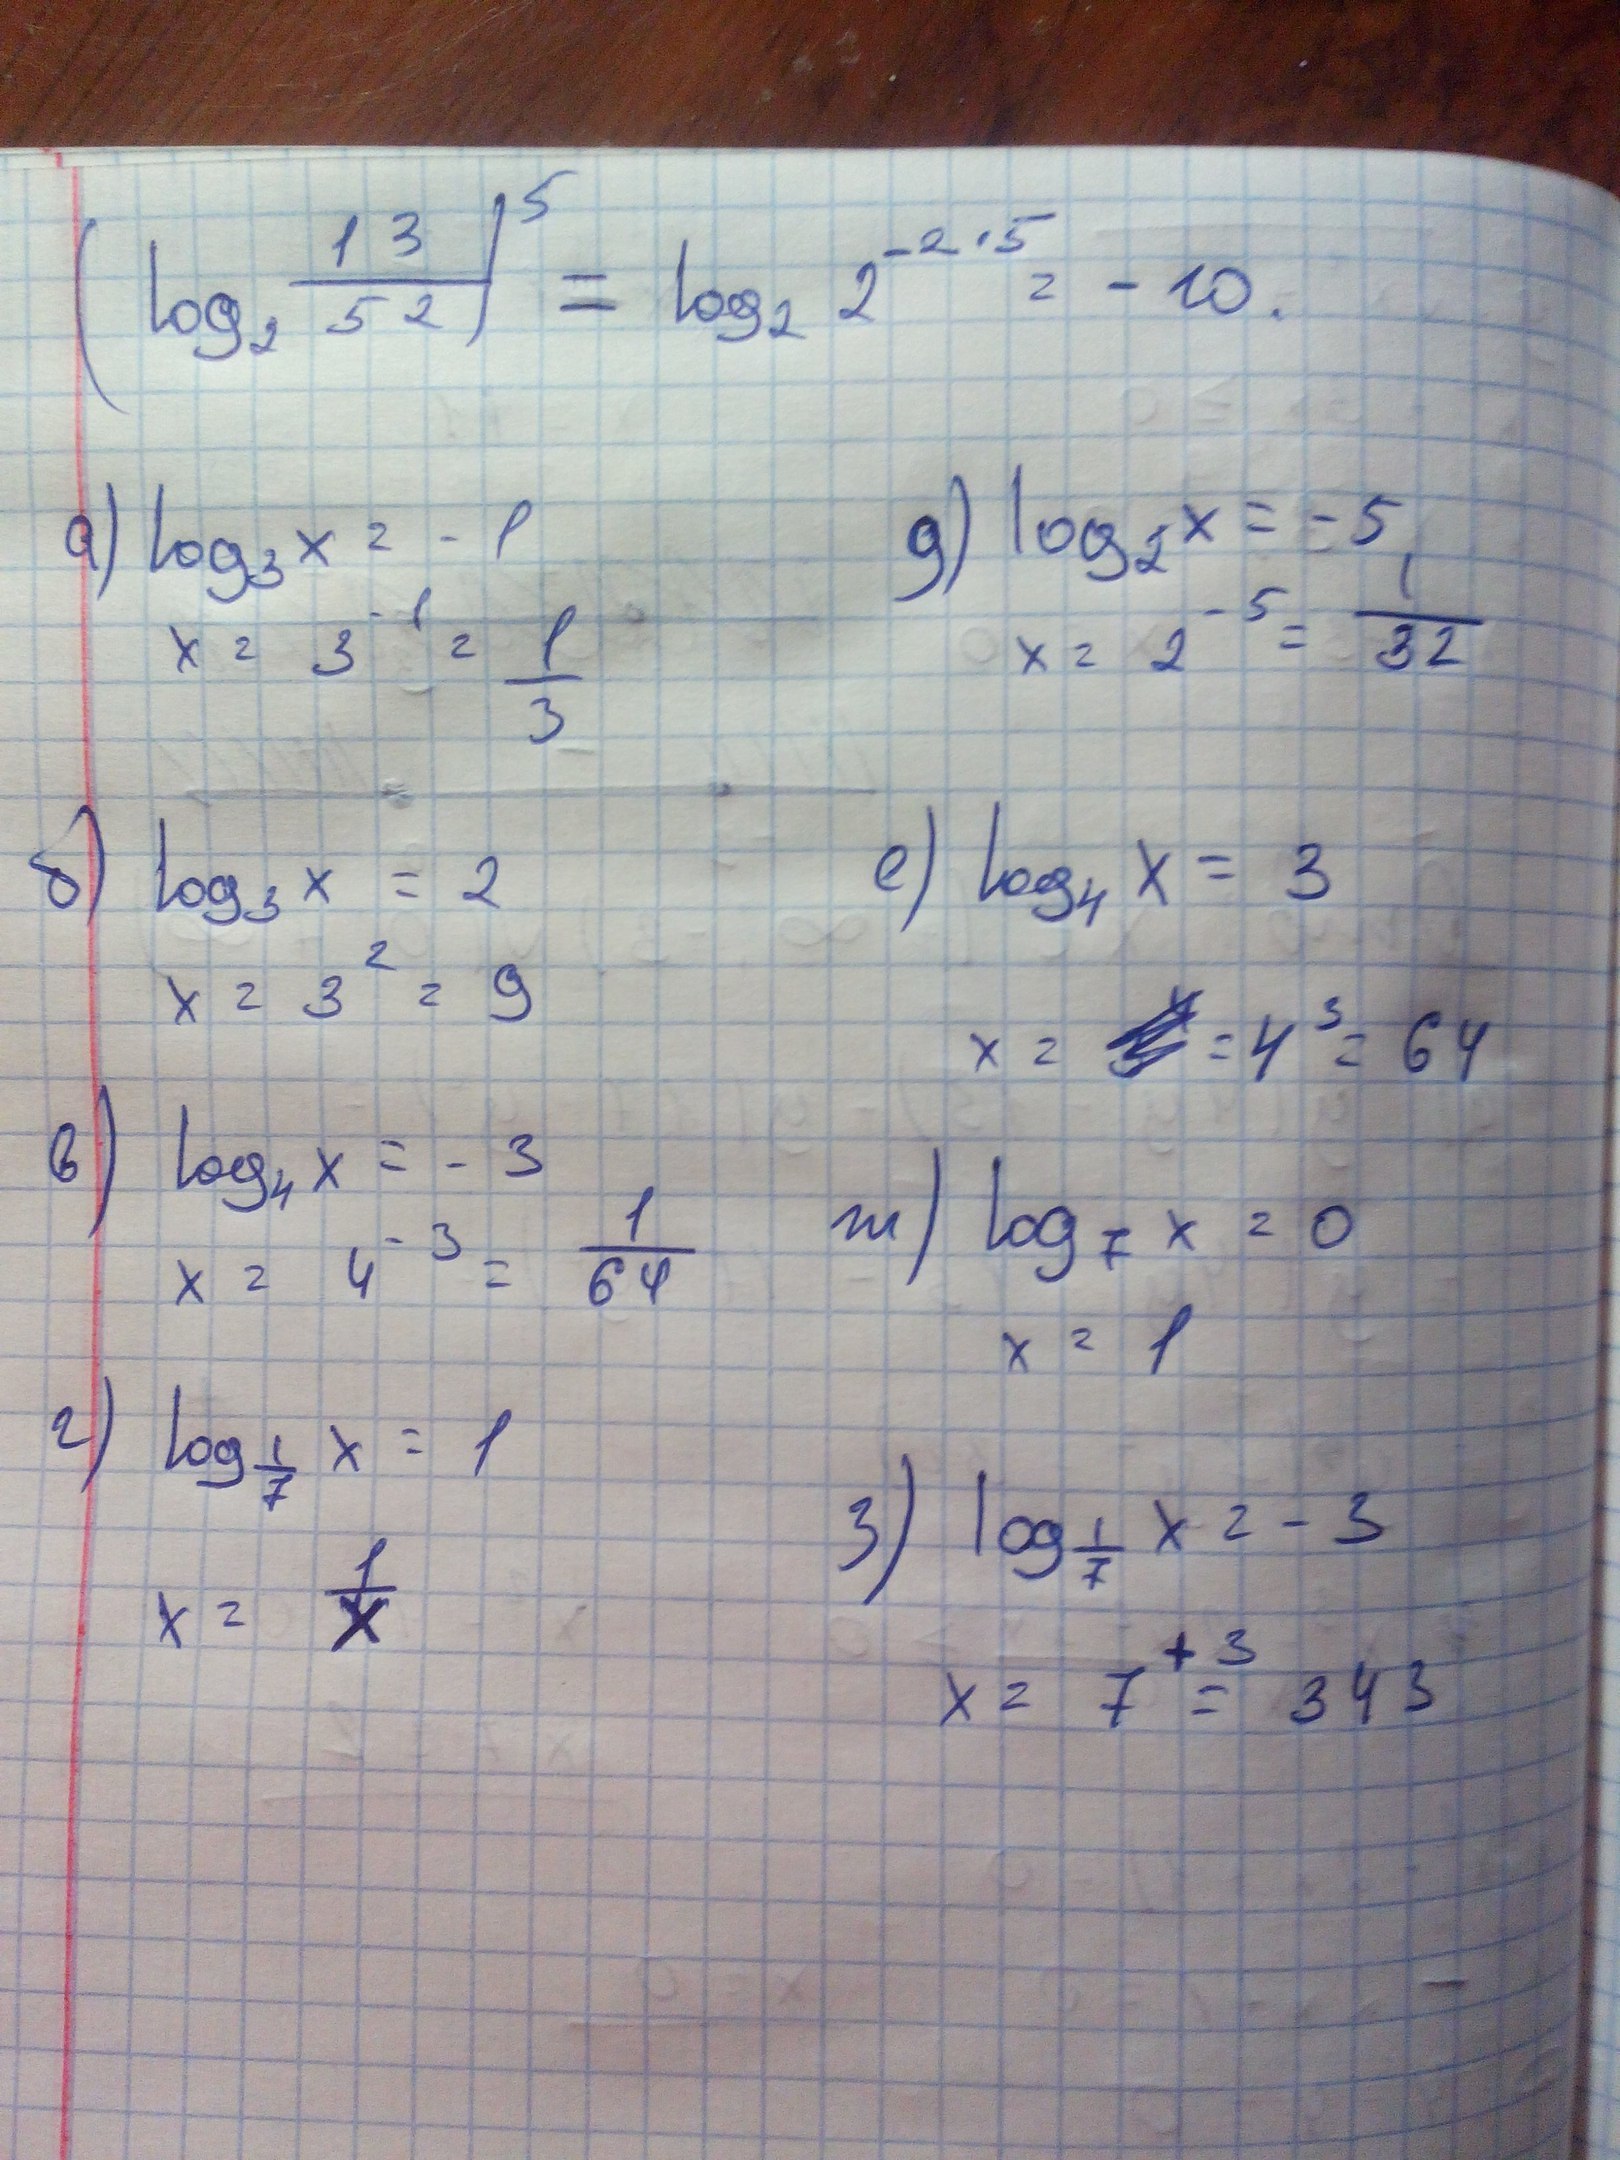 (log₂ 13/52)⁵ = log₂ 2^(-2·5) = -10.
а) log₃ x = -1
x = 3⁻¹ = 1/3
б) log₃ x = 2
x = 3² = 9
в) log₄ x = -3
x = 4⁻³ = 1/64
г) log_(1/7) x = 1
x = 1/x
д) log₂ x = -5
x = 2⁻⁵ = 1/32
е) log₄ x = 3
x = = 4³ = 64
ж) log₇ x = 0
x = 1
з) log_(1/7) x = -3
x = 7⁺³ = 343